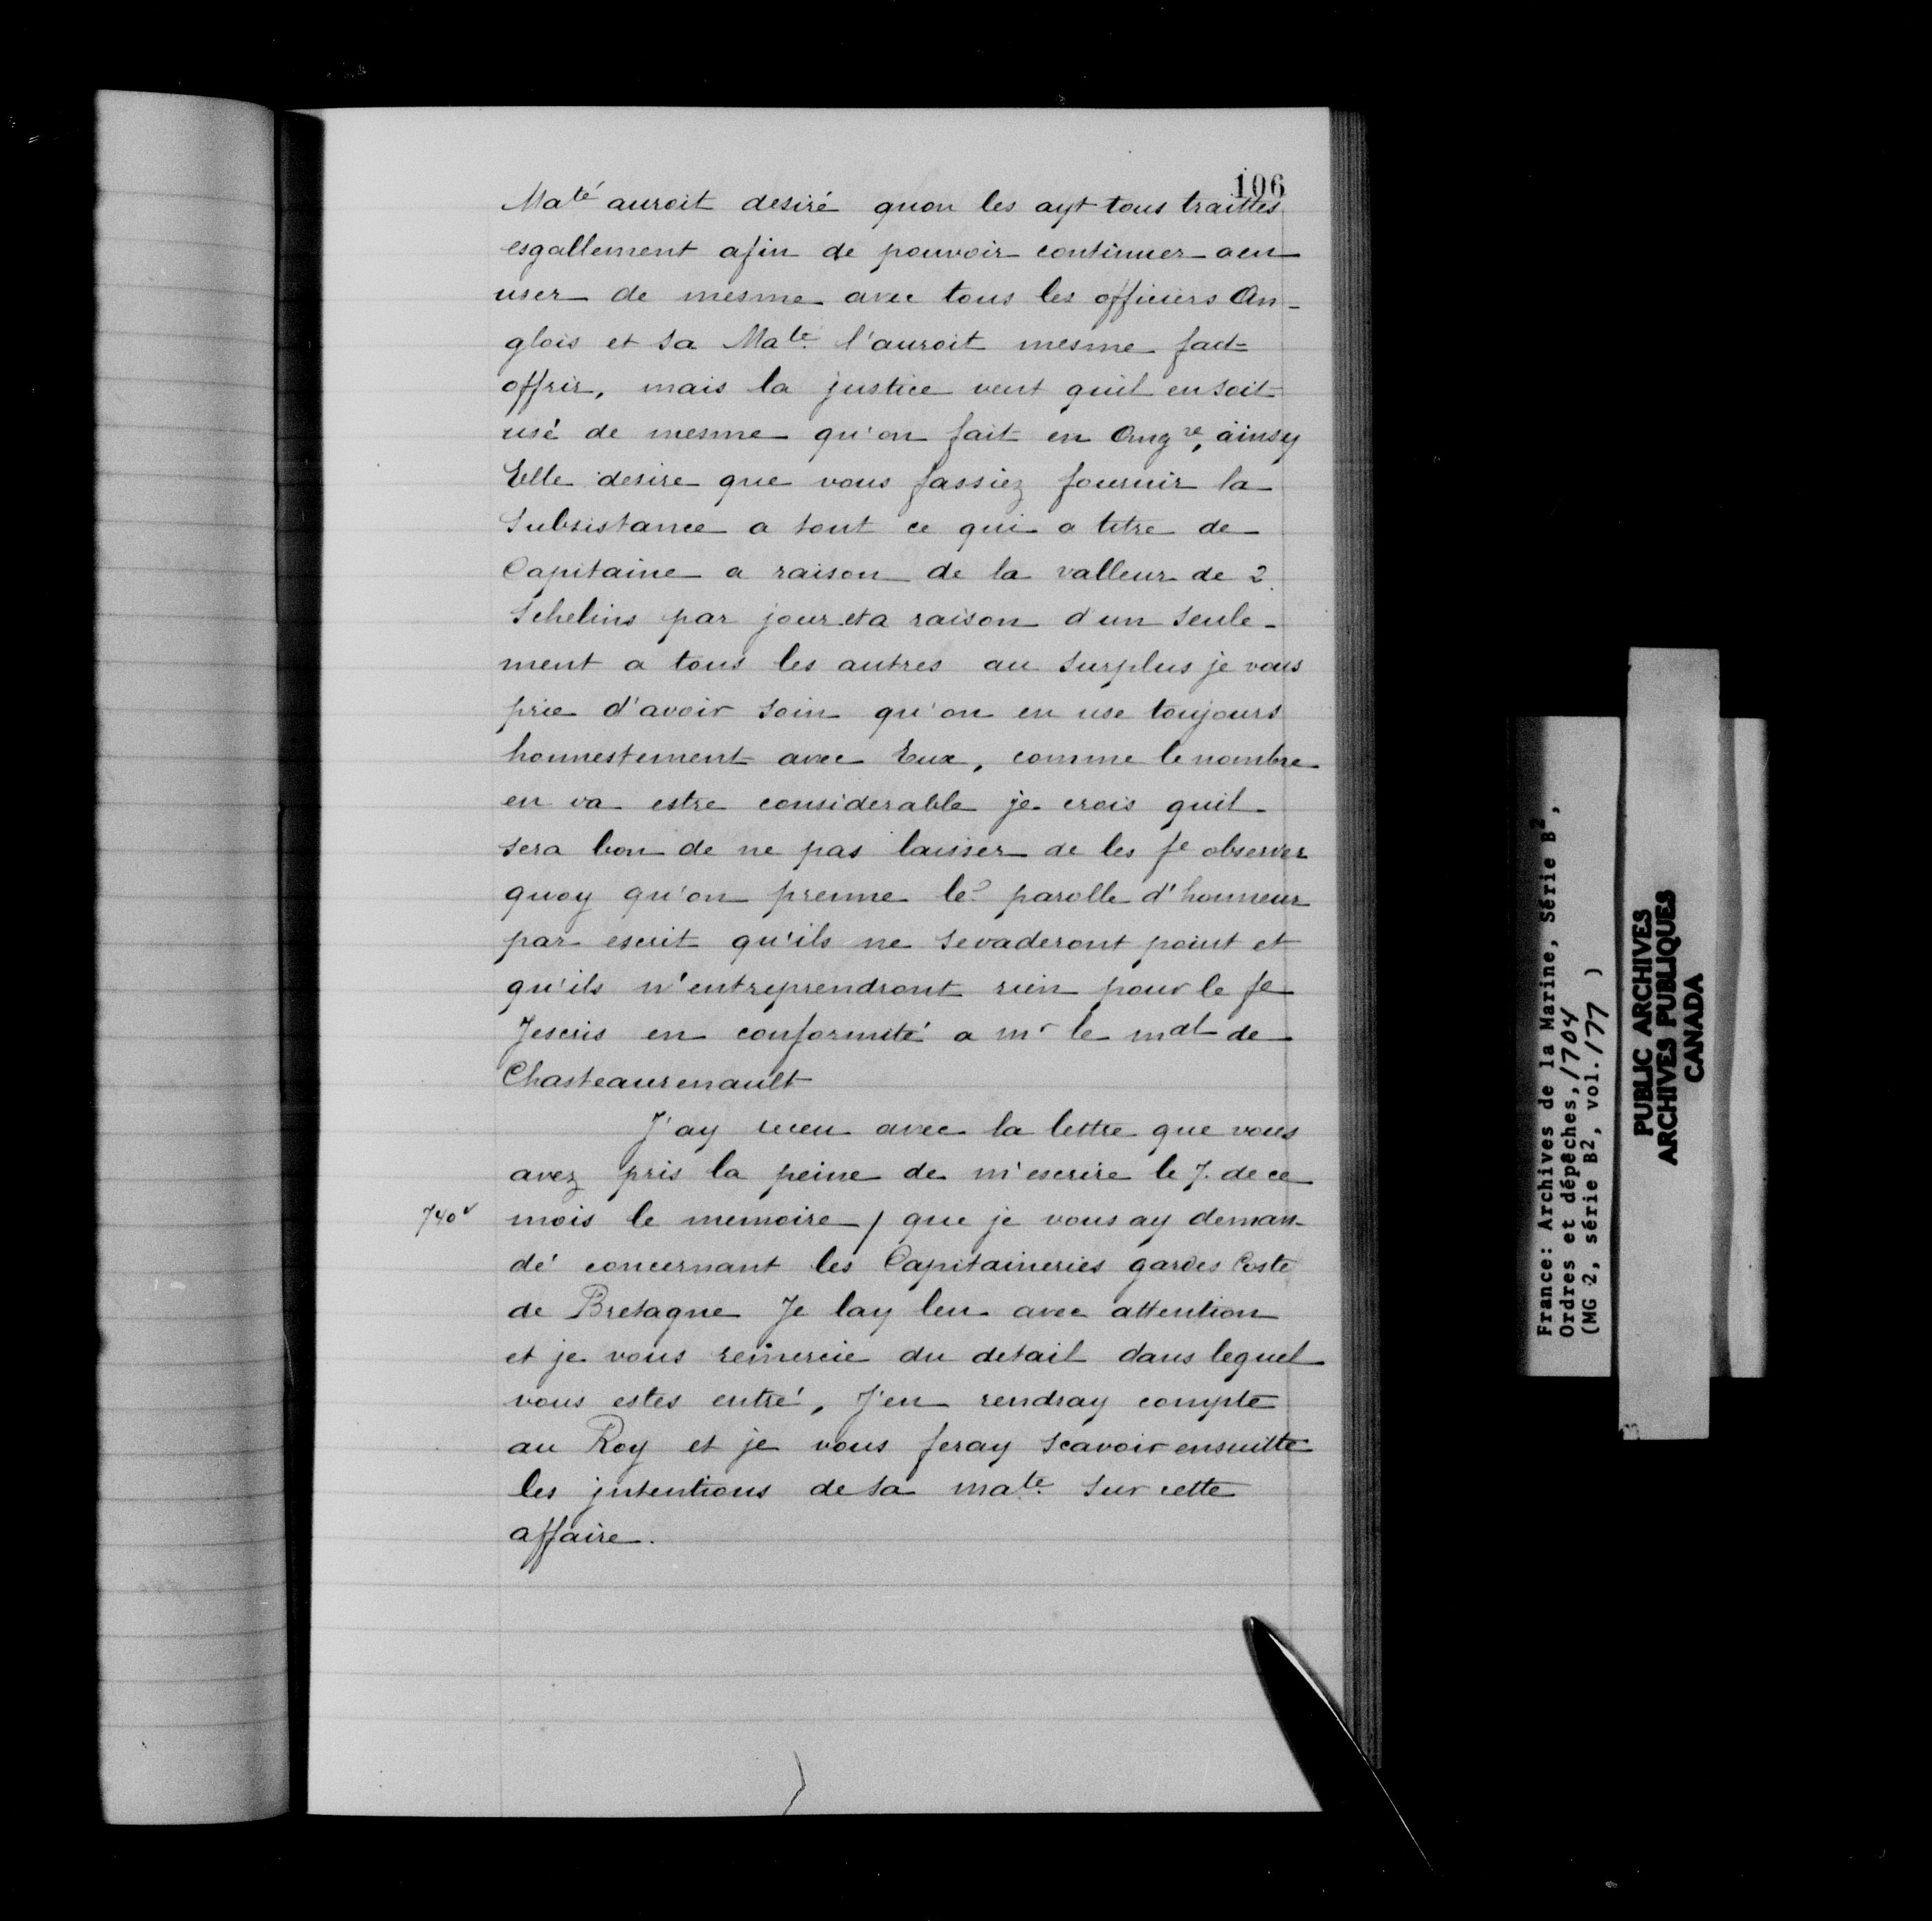 106
Ma^té auroit desiré quon les ayt tous traittes
esgallement afin de pouvoir continuer aen
user de mesme avec tous les officiers An-
glois et sa Ma^te. l'auroit mesme fait
offrir, mais la justice veut quil en soit
usé de mesme qu'on fait en Ang^re, ainsy
Elle desire que vous fassiez fournir la
Subsistance a tout ce qui a titre de
Capitaine a raison de la valleur de 2
Schelins par jour et a raison d'un seule-
ment a tous les autres au surplus je vous
prie d'avoir soin qu'on en use toujours
honnestement avec Eux, comme le nombre
en va estre considerable je crois quil
sera bon de ne pas laisser de les f^e observer
quoy qu'on prenne le? parolle d'honneur
par escrit qu'ils ne sevaderont point et
qu'ils n'entreprendront rien pour le f^e
Jescris en conformité a m^r le m^al de
Chasteaurenault
J'ay receu avec la lettre que vous
avez pris la peine de m'escrire le 7. de ce
740^v mois le memoire / que je vous ay deman-
dé concernant les Capitaineries gardes Coste
de Bretagne Je lay leu avec attention
et je vous remercie du detail dans lequel
vous estes entré, J'en rendray compte
au Roy et je vous feray scavoir ensuitte
les jntentions de sa ma^te. sur cette
affaire.
France: Archives de la Marine, Série B²,
Ordres et dépêches, 1704
(MG 2, série B2, vol. 177 )
PUBLIC ARCHIVES
ARCHIVES PUBLIQUES
CANADA